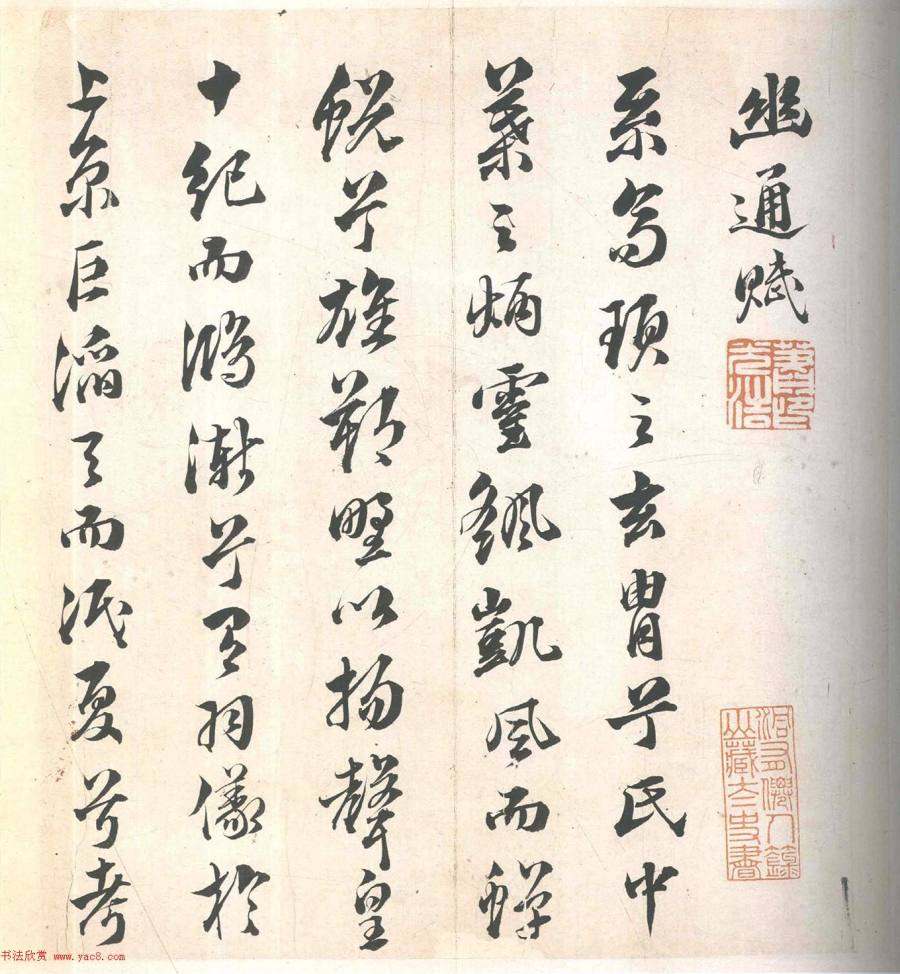 幽通賦
系高頊之玄冑兮氏中
葉之炳靈颻凱風而蟬
蛻兮雄朔野以揚聲皇
十紀而鴻漸兮有羽儀於
上京巨滔天而泯夏兮考
书法欣赏 www.yac8.com